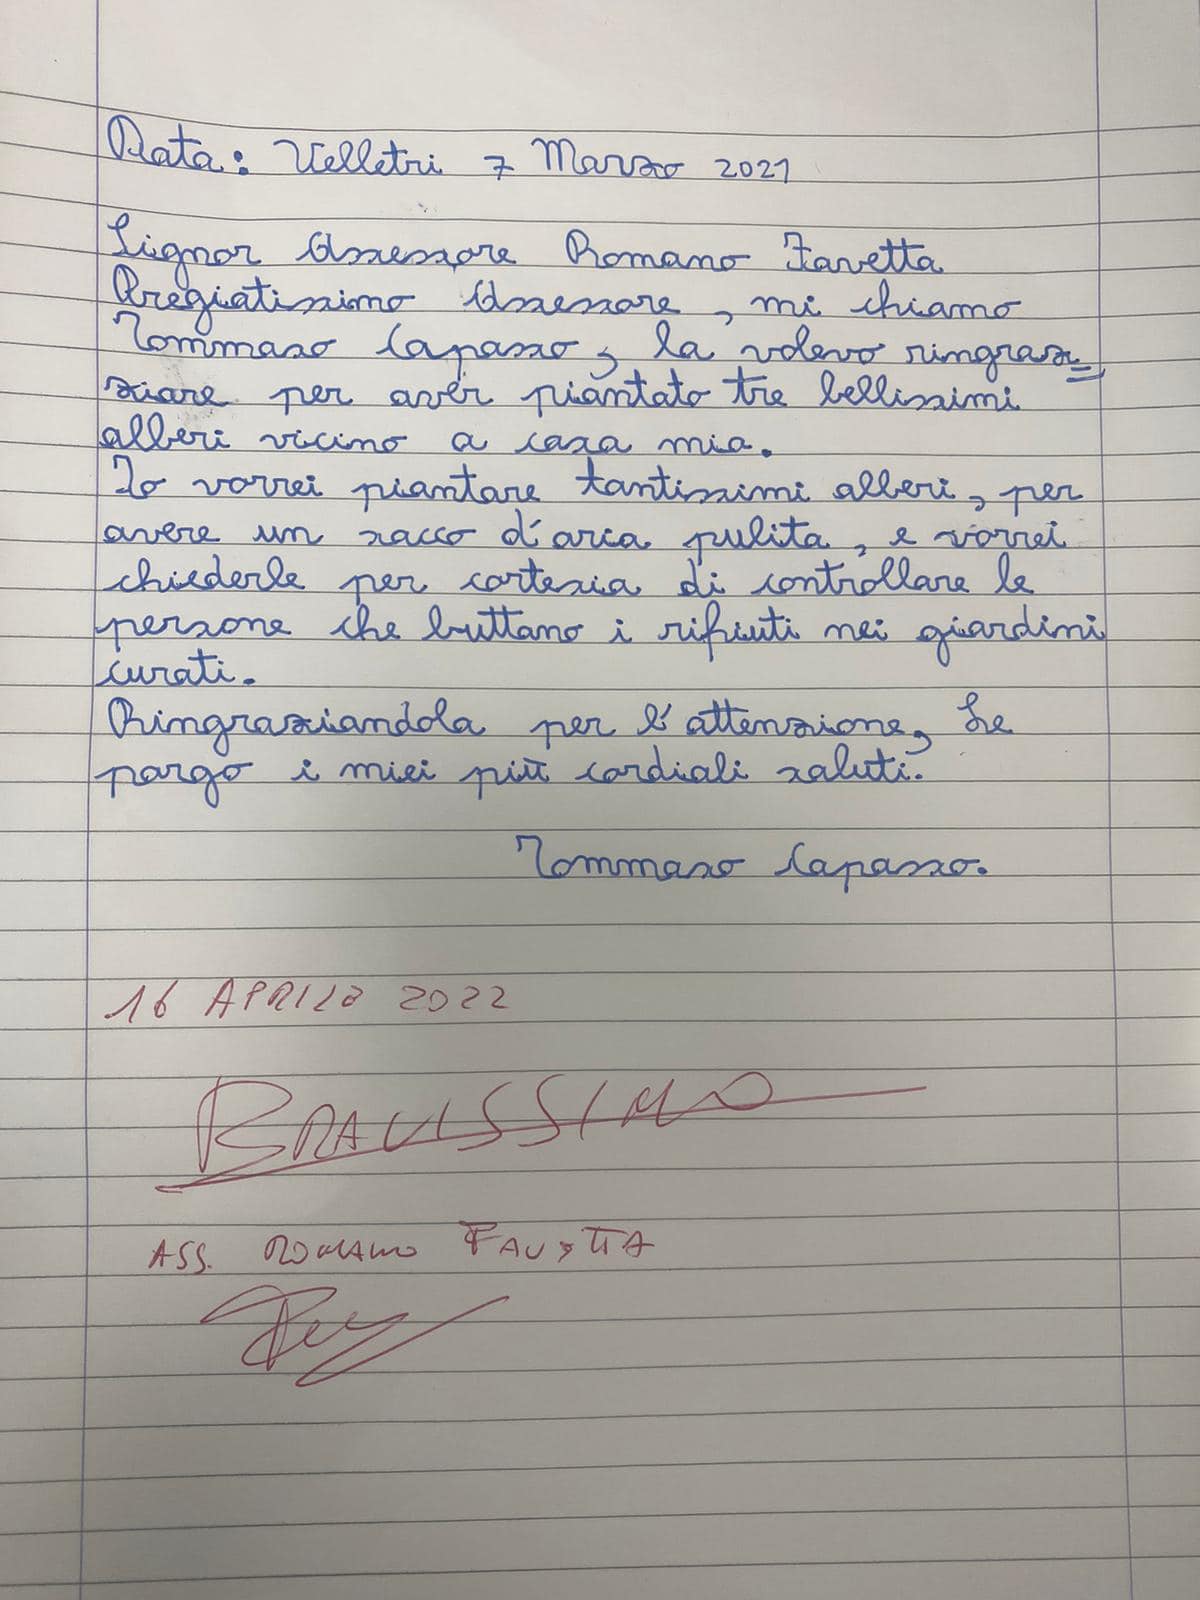 Data: Velletri 7 Marzo 2021
Signor Assessore Romano Favetta
Pregiatissimo Assessore, mi chiamo
Tommaso Capasso, la volevo ringraz=
ziare per aver piantato tre bellissimi
alberi vicino a casa mia.
Io vorrei piantare tantissimi alberi, per
avere un sacco d'aria pulita, e vorrei
chiederle per cortesia di controllare le
persone che buttano i rifiuti nei giardini
curati.
Ringraziandola per l'attenzione, Le
porgo i miei più cordiali saluti.
Tommaso Capasso.
16 APRILE 2022
BRAVISSIMO
ASS. ROMANO